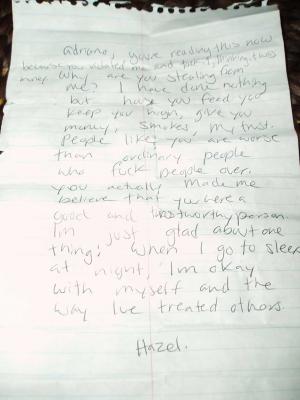 adriano, youre reading this now
because you violated me and took it, thinking it was
money. Why are you stealing from
me? I have done nothing
but house you feed you
keep you high, give you
money, smokes, my trust.
People like you are worse
than ordinary people
who fuck people over.
you actually made me
believe that you were a
good and trustworthy person.
I'm just glad about one
thing; when I go to sleep
at night, I'm okay
with myself and the
way Ive treated others.
Hazel.